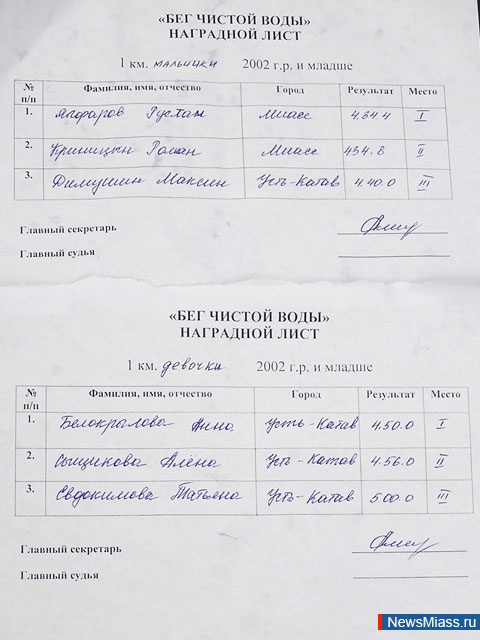 «БЕГ ЧИСТОЙ ВОДЫ»
НАГРАДНОЙ ЛИСТ
1 км. мальчики 2002 г.р. и младше
№ п/п Фамилия, имя, отчество Город Результат Место
1. Ягфаров Рустам Миасс 4.34 4 I
2. Криницын Роман Миасс 4 34.8 II
3. Димушин Максим Усть-Катав 4.40.0 III
Главный секретарь
Главный судья
«БЕГ ЧИСТОЙ ВОДЫ»
НАГРАДНОЙ ЛИСТ
1 км. девочки 2002 г.р. и младше
№ п/п Фамилия, имя, отчество Город Результат Место
1. Белокрылова Анна Усть-Катав 4.50.0 I
2. Сыщикова Алёна Усть-Катав 4.56.0 II
3. Евдокимова Татьяна Усть-Катав 5.00.0 III
Главный секретарь
Главный судья
NewsMiass.ru